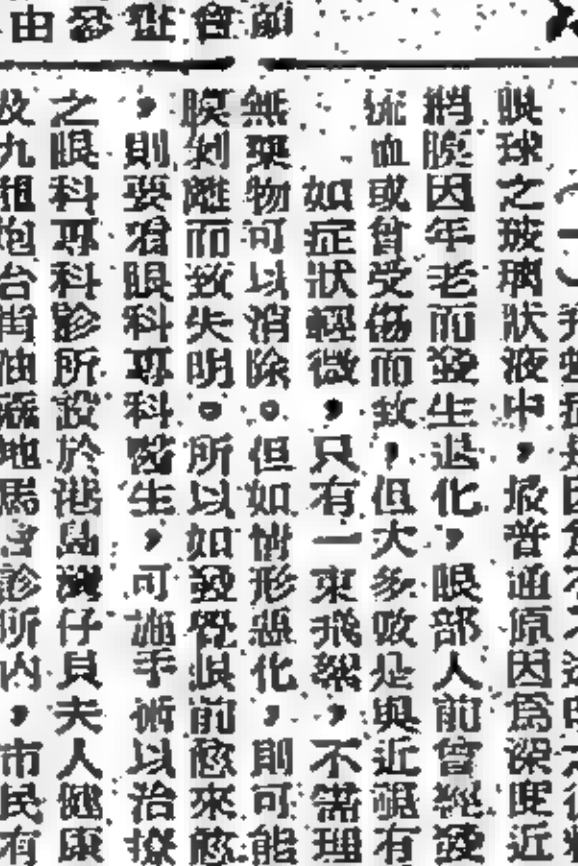 眼球之玻璃狀液中，最普通原因為深度近
網膜因年老而發生退化，眼部人前曾經發
流血或曾受傷而致，但大多數是與近視有
如症狀輕微，只有一束飛絮，不需理
無藥物可以消除。但如情形惡化，則可能
膜剝離而致失明。所以如發覺眼前愈來愈
，則要看眼科專科醫生，可施手術以治療
之眼科專科診所設於港島灣仔貝夫人健康
及九龍炮台街油蔴地馬會診所內，市民有